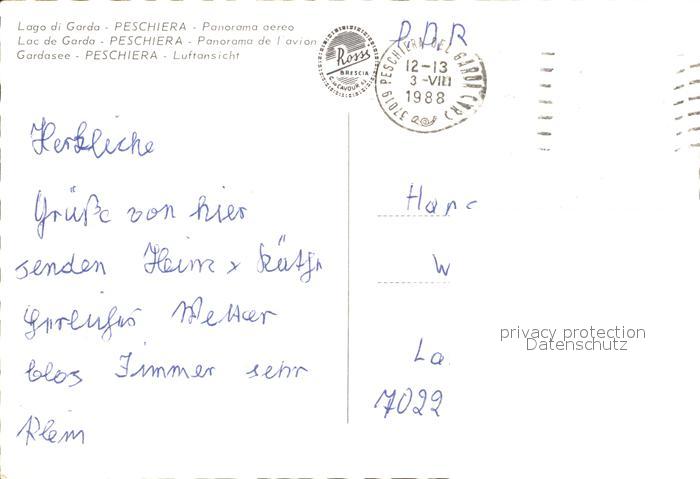 Lago di Garda - PESCHIERA - Panorama aereo
Lac de Garda - PESCHIERA - Panorama de l avion
Gardasee - PESCHIERA - Luftansicht
Ross
BRESCIA
37019 PESCHIERA DEL GARDA (VR)
12-13
3 -VIII
1988
Herzliche
Grüße von hier
senden Heinz
Wetter
blos Zimmer sehr
klein
W
La
7022
privacy protection
Datenschutz